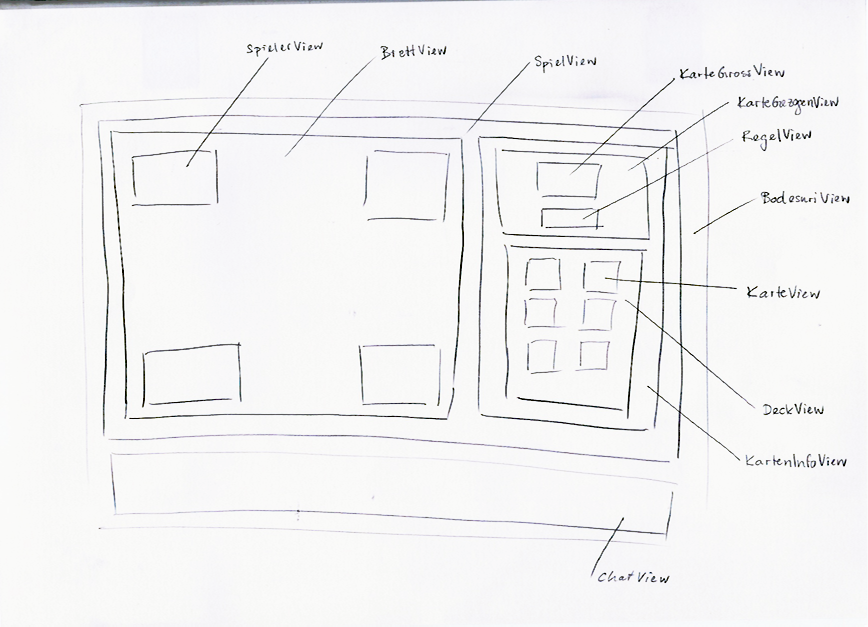 SpielerView
BrettView
SpielView
KarteGrossView
KarteGezogenView
RegelView
BodesuriView
KarteView
DeckView
KartenInfoView
ChatView